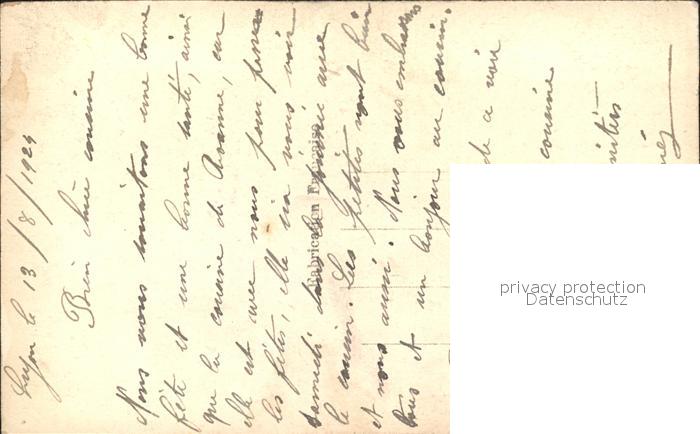 Lyon le 13/8/1924
Bien chère cousine
Nous vous souhaitons une bonne
fête et une bonne santé, ainsi
que la cousine de Roanne, car
elle est avec nous pour passer
les fêtes, elle ira vous voir
samedi dans la journée avec
le cousin. Les petites vont bien
et nous aussi. Nous vous embrassons
tous et un bonjour au cousin.
de a voir
cousine
Fabrication Française
privacy protection
Datenschutz